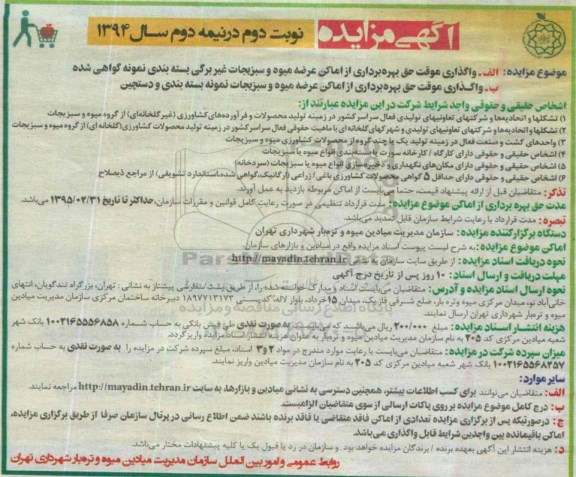 آگهی مزایده
نوبت دوم در نیمه دوم سال ۱۳۹۴
موضوع مزایده: الف ـ واگذاری موقت حق بهره‌برداری از اماکن عرضه میوه و سبزیجات غیر برگی بسته بندی نمونه گواهی شده
ب ـ واگذاری موقت حق بهره‌برداری از اماکن عرضه میوه و سبزیجات نمونه بسته بندی و دستچین
اشخاص حقیقی و حقوقی واجد شرایط شرکت در این مزایده عبارتند از:
۱) تشکلها و اتحادیه‌ها و شرکتهای تعاونیهای تولیدی فعال سراسر کشور در زمینه تولید محصولات و فرآورده‌های کشاورزی (غیر گلخانه‌ای) از گروه میوه و سبزیجات
۲) تشکلها و اتحادیه‌ها و شرکتهای تعاونیهای تولیدی و شهرکهای گلخانه‌ای با ماهیت حقوقی فعال سراسر کشور در زمینه تولید محصولات کشاورزی (گلخانه‌ای) از گروه میوه و سبزیجات
۳) واحدهای کشت و صنعت فعال در زمینه تولید یک یا چند گروه از محصولات کشاورزی میوه و سبزیجات
۴) اشخاص حقیقی و حقوقی دارای کارگاه / کارخانه سورت یا بسته‌بندی انواع میوه یا سبزیجات
۵) اشخاص حقیقی و حقوقی دارای مکان‌های نگهداری و ذخیره‌سازی انواع میوه یا سبزیجات (سردخانه)
۶) اشخاص حقیقی و حقوقی دارای حداقل ۵ گواهی محصولات کشاورزی باغی / زراعی (ارگانیک، گواهی شده، استاندارد تشویقی) از مراجع ذیصلاح
تذکر: متقاضیان قبل از ارائه پیشنهاد قیمت، حتما می‌بایست از اماکن مربوطه بازدید به عمل آورند.
مدت حق بهره برداری از اماکن موضوع مزایده: مدت قرارداد تنظیمی در صورت رعایت کامل قوانین و مقررات سازمان، حداکثر تا تاریخ ۱۳۹۵/۰۲/۳۱ می‌باشد.
تبصره: مدت قرارداد با رعایت شرایط سازمان قابل تمدید می‌باشد.
دستگاه برگزار کننده مزایده: سازمان مدیریت میادین میوه و تره‌بار شهرداری تهران
اماکن موضوع مزایده: به شرح لیست پیوست اسناد مزایده واقع در میادین و بازارهای سازمان
نحوه دریافت اسناد مزایده: از طریق سایت سازمان http://mayadin.tehran.ir
مهلت دریافت و ارسال اسناد: ۱۰ روز پس از تاریخ درج آگهی
نحوه ارسال اسناد مزایده و آدرس: متقاضیان می‌بایست اسناد و مدارک خواسته شده را، از طریق پست سفارشی پیشتاز به نشانی: تهران، بزرگراه تندگویان، انتهای
خانی‌آباد نو، میدان مرکزی میوه و تره بار، ضلع شرقی فاز یک، میدان ۱۵ خرداد، بلوار لاله، کدپستی ۱۸۹۷۷۱۳۱۷۳ دبیرخانه ساختمان مرکزی سازمان مدیریت میادین
میوه و تره‌بار شهرداری تهران ارسال نمایند.
هزینه انتشار اسناد مزایده: مبلغ ۲۰۰/۰۰۰ ریال می‌باشد که می‌بایست به صورت نقدی طی فیش بانکی به حساب شماره ۱۰۰۲۱۶۵۵۵۶۸۵۸ بانک شهر
شعبه میادین مرکزی کد ۲۰۵ به نام سازمان مدیریت میادین میوه و تره‌بار به عنوان هزینه انتشار اسناد مزایده واریز گردد.
میزان سپرده شرکت در مزایده: متقاضیان می‌بایست با رعایت موارد مندرج در مواد ۲ و ۳ اسناد، مبلغ سپرده شرکت در مزایده را به صورت نقدی به حساب شماره
۱۰۰۲۱۶۵۵۶۸۲۵۷ بانک شهر شعبه میادین مرکزی کد ۲۰۵ به نام سازمان مدیریت میادین میوه و تره‌بار شهرداری تهران واریز نمایند.
سایر موارد:
الف: متقاضیان می‌توانند برای کسب اطلاعات بیشتر، همچنین دسترسی به نشانی میادین و بازارها، به سایت http://mayadin.tehran.ir مراجعه نمایند.
ب: درج کامل موضوع مزایده بر روی پاکات ارسالی از سوی متقاضیان الزامیست.
ج: درصورتیکه پس از برگزاری مزایده تعدادی از اماکن فاقد متقاضی یا فاقد برنده باشند ضمن اطلاع رسانی در پرتال سازمان صرفا از طریق برگزاری مزایده،
اماکن باقیمانده بین واجدین شرایط قابل واگذاری می‌باشد.
د: هزینه انتشار این آگهی بعهده برنده / برندگان مزایده خواهد بود. و سازمان در رد یا قبول یک یا کلیه پیشنهادات مختار می‌باشد.
روابط عمومی و امور بین الملل سازمان مدیریت میادین میوه و تره‌بار شهرداری تهران